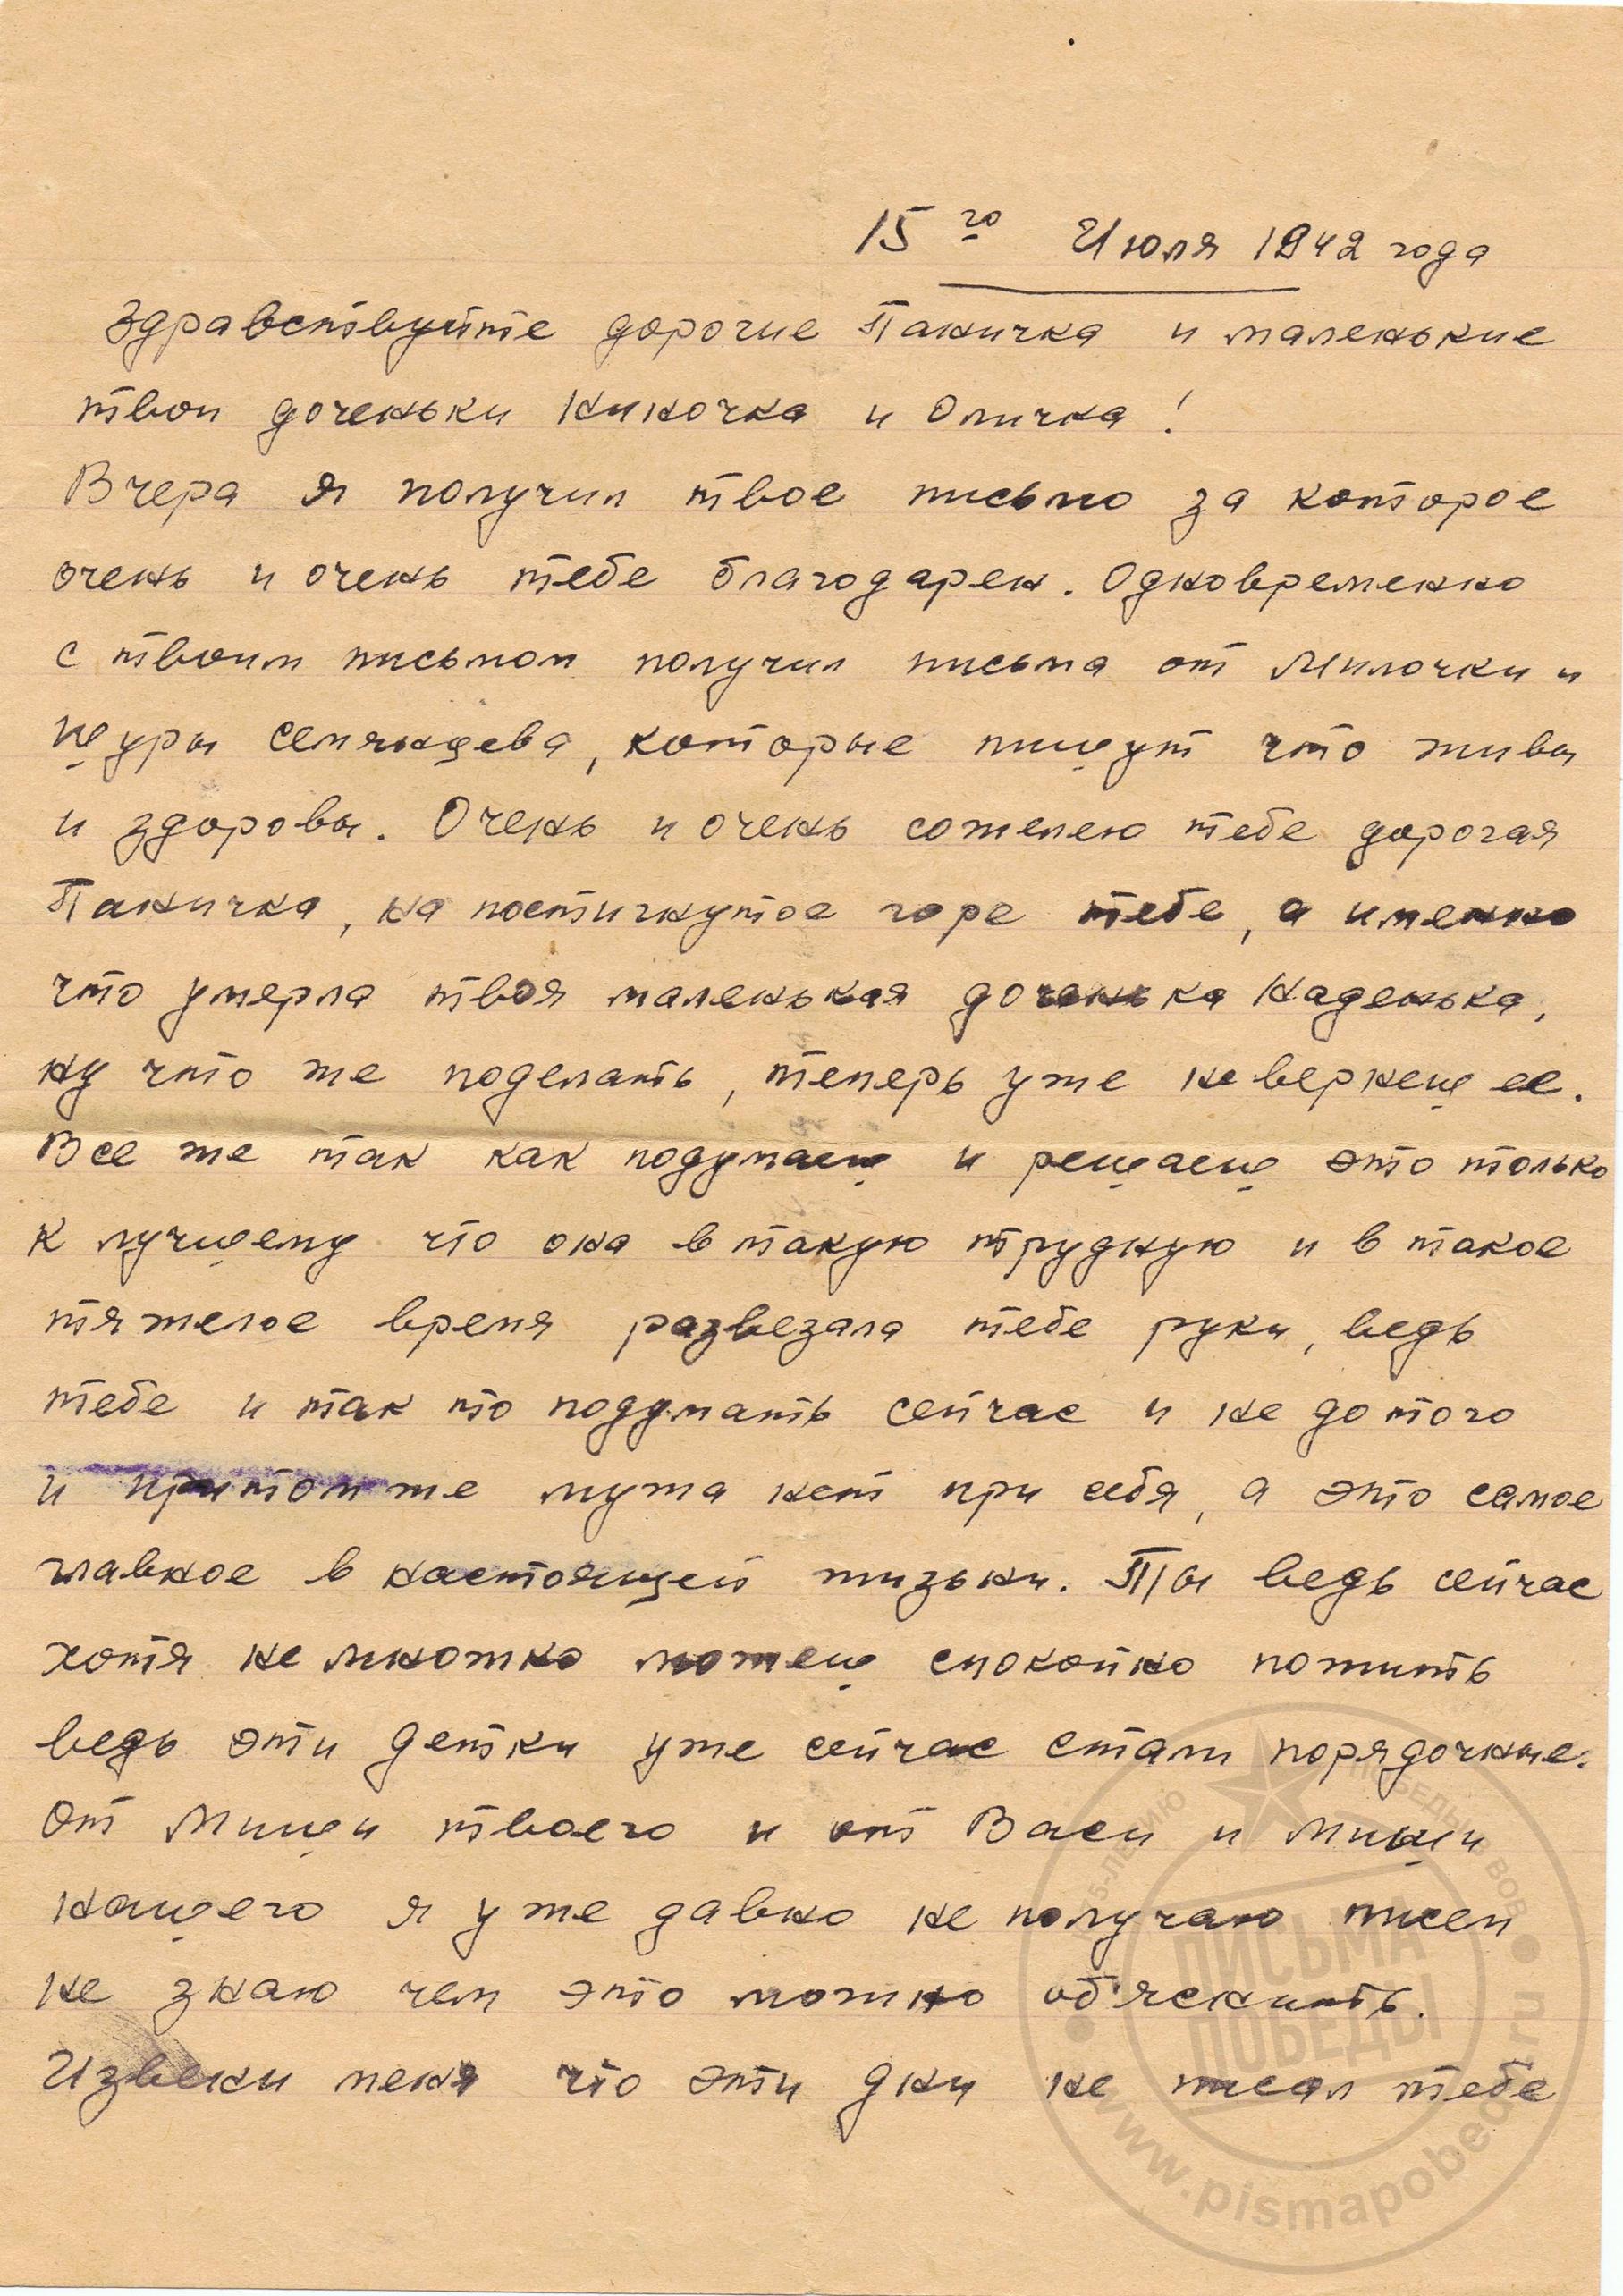 15го Июля 1942 года
Здравствуйте дорогие Таничка и маленькие
твои доченьки Ниночка и Оличка!
Вчера я получил твое письмо за которое
очень и очень тебе благодарен. Одновременно
с твоим письмом получил письма от Милочки и
Шуры Семянцева, которые пишут что живы
и здоровы. Очень и очень сожелею тебе дорогая
Таничка, на постигнутое горе тебе, а именно
что умерла твоя маленькая доченька Наденька,
ну что же поделать, теперь уже не вернеш ее.
Все же так как подумаеш и решаеш это только
к лучшему что она в такую трудную и в такое
тяжелое время развезала тебе руки, ведь
тебе и так то подумать сейчас и не до того
и притом же мужа нет при себя, а это самое
главное в настоящей жизьни. Ты ведь сейчас
хотя не множко можеш спокойно пожить
ведь эти детки уже сейчас стали порядочные.
От Миши твоего и от Васи и Миши
нашего я уже давно не получаю писем
не знаю чем это можно об'яснить.
Извени меня что эти дни не писал тебе
75-ЛЕТИЮ ПОБЕДЫ В ВОВ
ПИСЬМА
ПОБЕДЫ
www.pismapobedy.ru